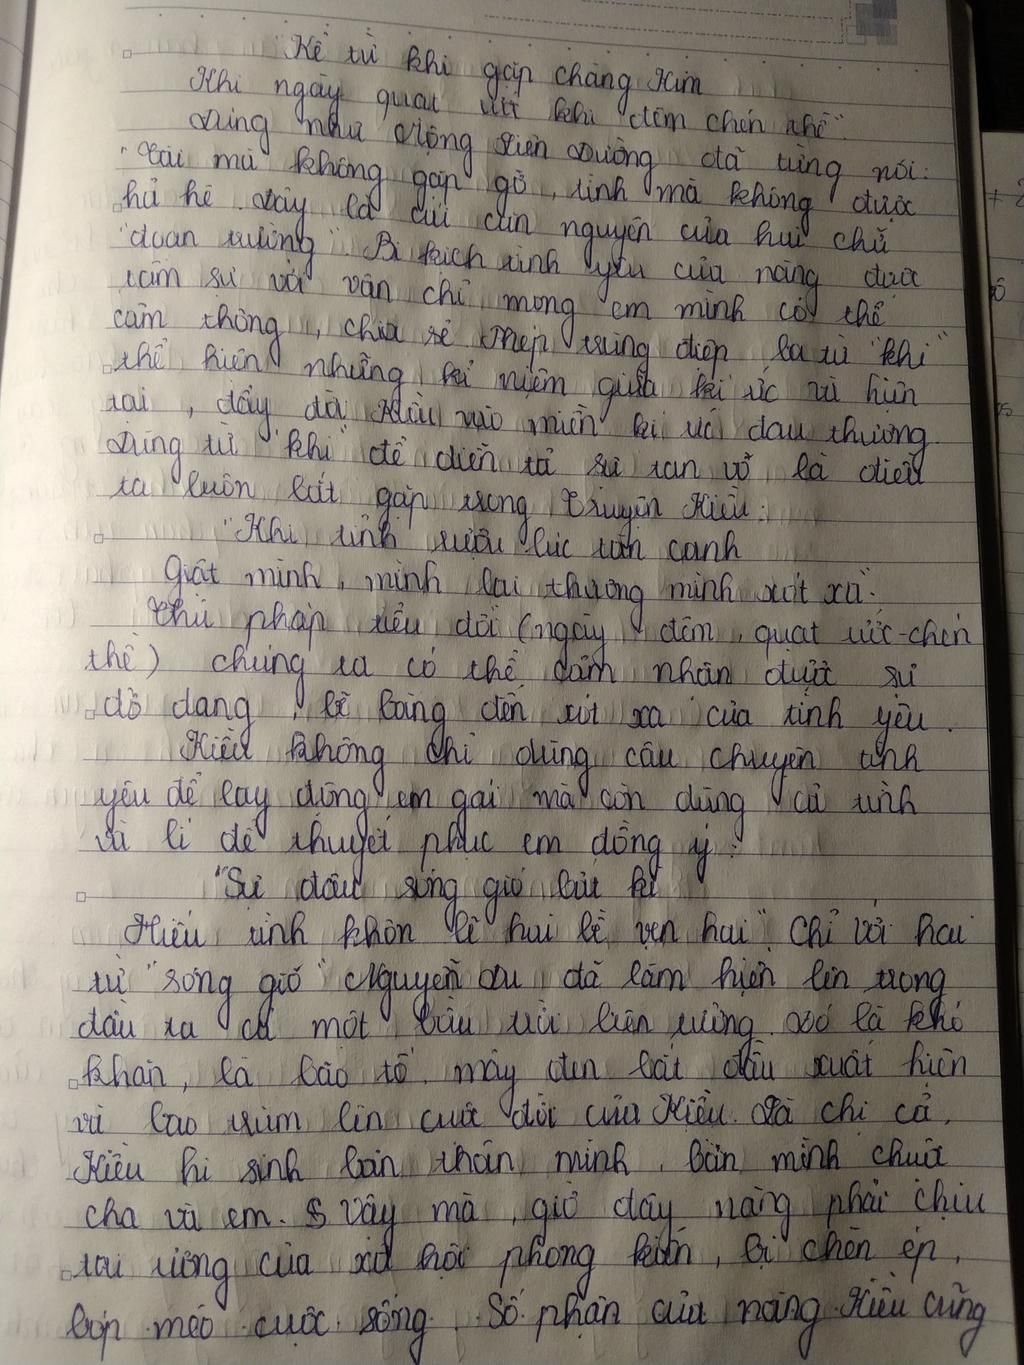 "Kể từ khi gặp chàng Kim
Khi ngày quạt ước khi đêm chén thề".
Đúng như Mộng Liên Đường đã từng nói:
"Tài mà không gặp gỡ, tình mà không được
hả hê. Đây là cái căn nguyên của hai chữ
"đoạn trường". Bi kịch tình yêu của nàng được
tâm sự với Vân chỉ mong em mình có thể
cảm thông, chia sẻ. Phép trùng điệp là từ "khi"
thể hiện những kỉ niệm giữa kí ức và hiện
tại, đẩy đời Kiều vào miền kí ức đau thương.
Dùng từ "khi" để diễn tả sự tan vỡ là điều
ta luôn bắt gặp trong Truyện Kiều:
"Khi tỉnh rượu lúc tàn canh
Giật mình, mình lại thương mình xót xa".
Thủ pháp tiểu đối (ngày - đêm, quạt ước-chén
thề) chúng ta có thể cảm nhận được sự
dở dang, bẽ bàng đến xót xa của tình yêu.
Kiều không chỉ dùng câu chuyện tình
yêu để lay động em gái mà còn dùng cả tình
và lí để thuyết phục em đồng ý:
"Sự đâu sóng gió bất kì
Hiếu tình khôn lẽ hai bề vẹn hai". Chỉ với hai
từ "sóng gió" Nguyễn Du đã làm hiện lên trong
đầu ta cả một bầu trời liên tưởng. Đó là khó
khăn, là bão tố, mây đen bắt đầu xuất hiện
và bao trùm lên cuộc đời của Kiều. Là chị cả,
Kiều hi sinh bản thân mình, bán mình chuộc
cha và em. Vậy mà, giờ đây nàng phải chịu
tai ương của xã hội phong kiến, bị chèn ép,
bóp méo cuộc sống. Số phận của nàng Kiều cũng